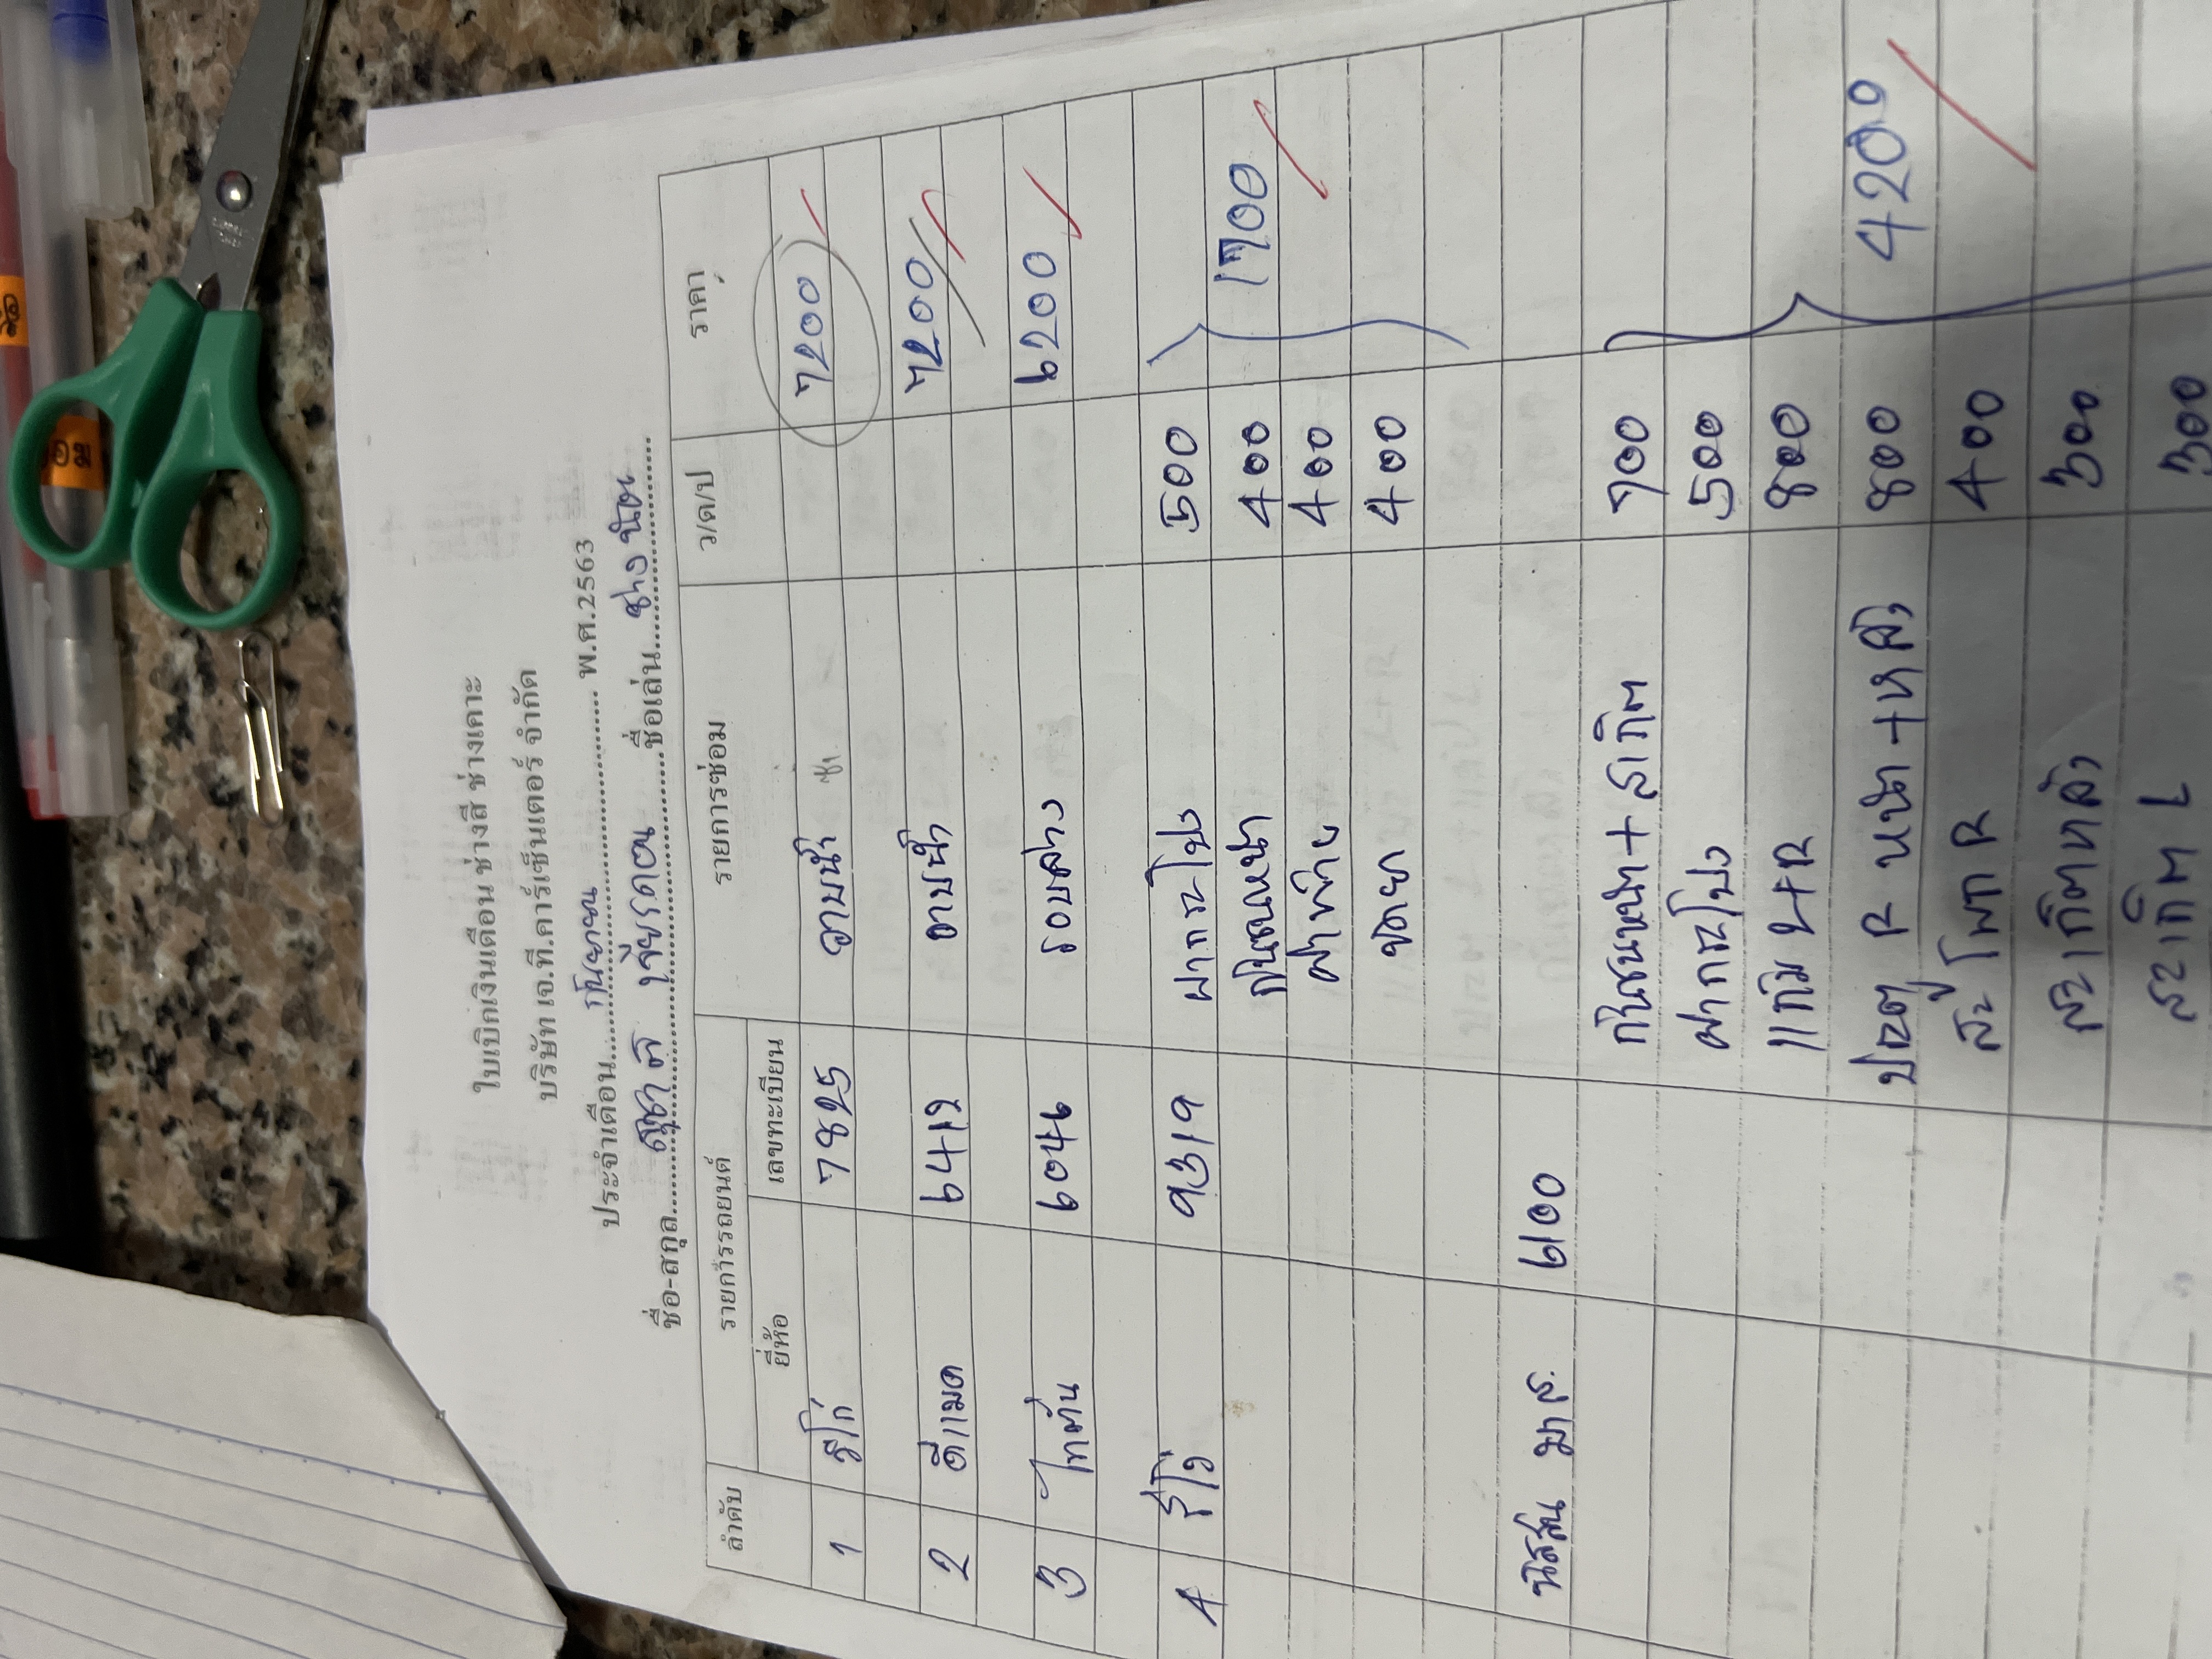 ใบเบิกเงินเดือน ช่างสี ช่างเคาะ
บริษัท เจ.ที.คาร์เซ็นเตอร์ จำกัด
ประจำเดือน....กันยายน.... พ.ศ.2563
ชื่อ-สกุล.... ....ชื่อเล่น....ช่าง นิด....
ลำดับ รายการรถยนต์ รายการซ่อม ว/ด/ป ราคา
ยี่ห้อ เลขทะเบียน
1 รีโว่ 7825 อาบน้ำ 7200
2 ดีแมค 6419 อาบน้ำ 7200
3 ไททัน 6046 รอบคาง 6200
4 รีโว่ 9319 ฝากระโปง 500
กันชนหน้า 400 1700
ฝาท้าย 400
400
นิสสัน มาส. 6100
กันชนหน้า + สเกิต 700
ฝากระโปง 500
แก้ม L+R 800
ประตู R หน้า + หลัง 800 4200
สะโพก R 400
สะเกิตหลัง 300
สะเกิต L 300